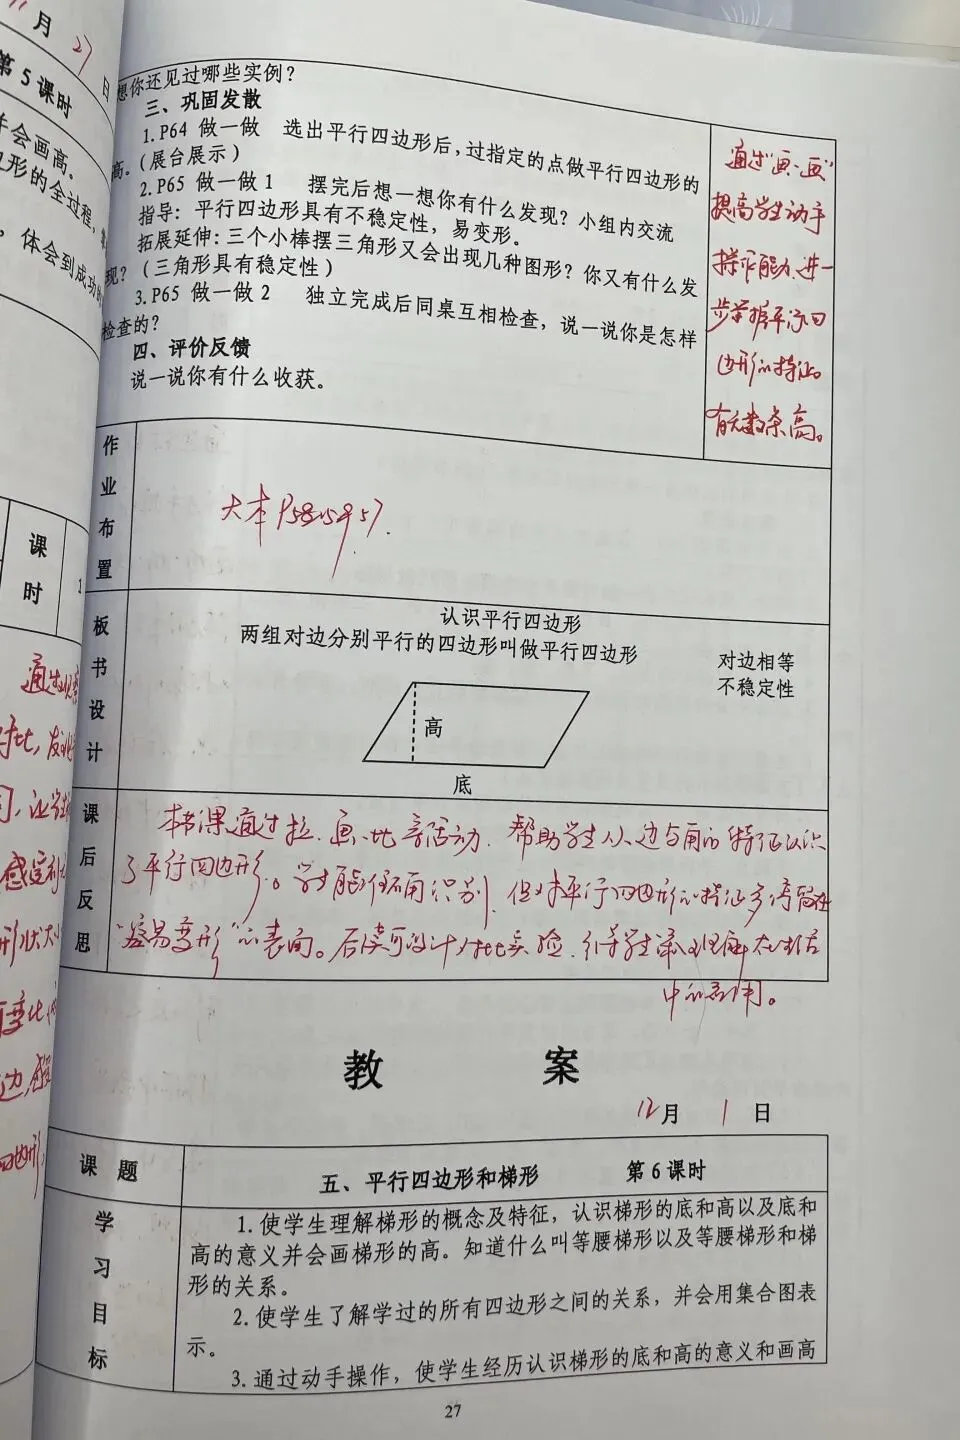 月 27 日
第5课时
并会画高。
形的全过程,
，体会到成功的
课
时
1
通过观察
对比，发现
感受
形状大小
想你还见过哪些实例？
三、巩固发散
1.P64 做一做 选出平行四边形后，过指定的点做平行四边形的
高。（展台展示）
2.P65 做一做1 摆完后想一想你有什么发现？小组内交流
指导：平行四边形具有不稳定性，易变形。
拓展延伸：三个小棒摆三角形又会出现几种图形？你又有什么发
现？（三角形具有稳定性）
3.P65 做一做2 独立完成后同桌互相检查，说一说你是怎样
检查的？
四、评价反馈
说一说你有什么收获。
通过“画·画”
提高学生动手
操作能力、进一
步掌握平行四
边形的特征。
有无数条高。
作业布置
大本P58
板书设计
认识平行四边形
两组对边分别平行的四边形叫做平行四边形
对边相等
不稳定性
高
底
课后反思
本节课通过拉、画、比等活动，帮助学生从边与角的特征认识
了平行四边形。学生能准确识别，但对平行四边形的特征多停留在
“容易变形”的表面。后续可设计对比实验，引导学生深入理解在生活
中的应用。
教 案
12月 1 日
课 题
五、平行四边形和梯形 第6课时
学习目标
1.使学生理解梯形的概念及特征，认识梯形的底和高以及底和
高的意义并会画梯形的高。知道什么叫等腰梯形以及等腰梯形和梯
形的关系。
2.使学生了解学过的所有四边形之间的关系，并会用集合图表
示。
3.通过动手操作，使学生经历认识梯形的底和高的意义和画高
27